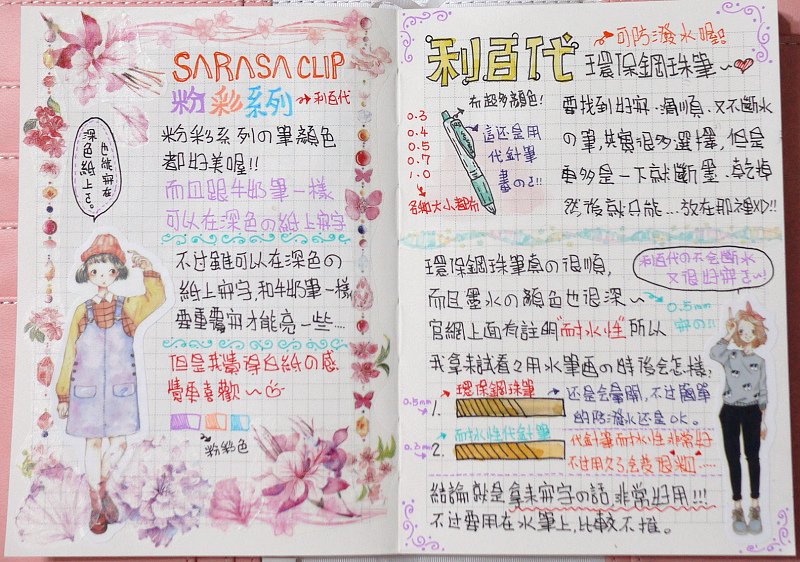 SARASA CLIP
粉彩系列
→利百代
粉彩系列の筆顏色
都好美喔!!
而且跟牛奶筆一樣
可以在深色の紙上寫字
也能寫在
深色紙上
不过雖可以在深色の
紙上寫字,和牛奶筆一樣
要重覆寫才能亮一些....
但是我覺得白紙の感
覺更喜歡~
粉彩色
利百代
→可防潑水喔!!
環保鋼珠筆~
有超多顏色!
0.3
0.4
0.5
0.7
1.0
各種大小都有
這还是用
代針筆
畫の!!
要找到好寫.滑順.又不斷水
の筆,其實很多選擇,但是
更多是一下就斷墨.乾掉
然後就只能...放在那裡XD!!
環保鋼珠筆真の很順,
而且墨水の顏色也很深~
官網上面有註明"耐水性"所以
我拿來試看看用水筆画の時後会怎樣,
利百代の不会斷水
又很好寫
0.5mm
寫の!!
0.5mm
1.
環保鋼珠筆
还是会暈開,不过簡單
の防潑水还是OK。
0.3mm
2.
耐水性代針筆
代針筆耐水性非常好
不过用久了会
結論就是拿來寫字の話非常好用!!!
不过要用在水筆上,比較不推。